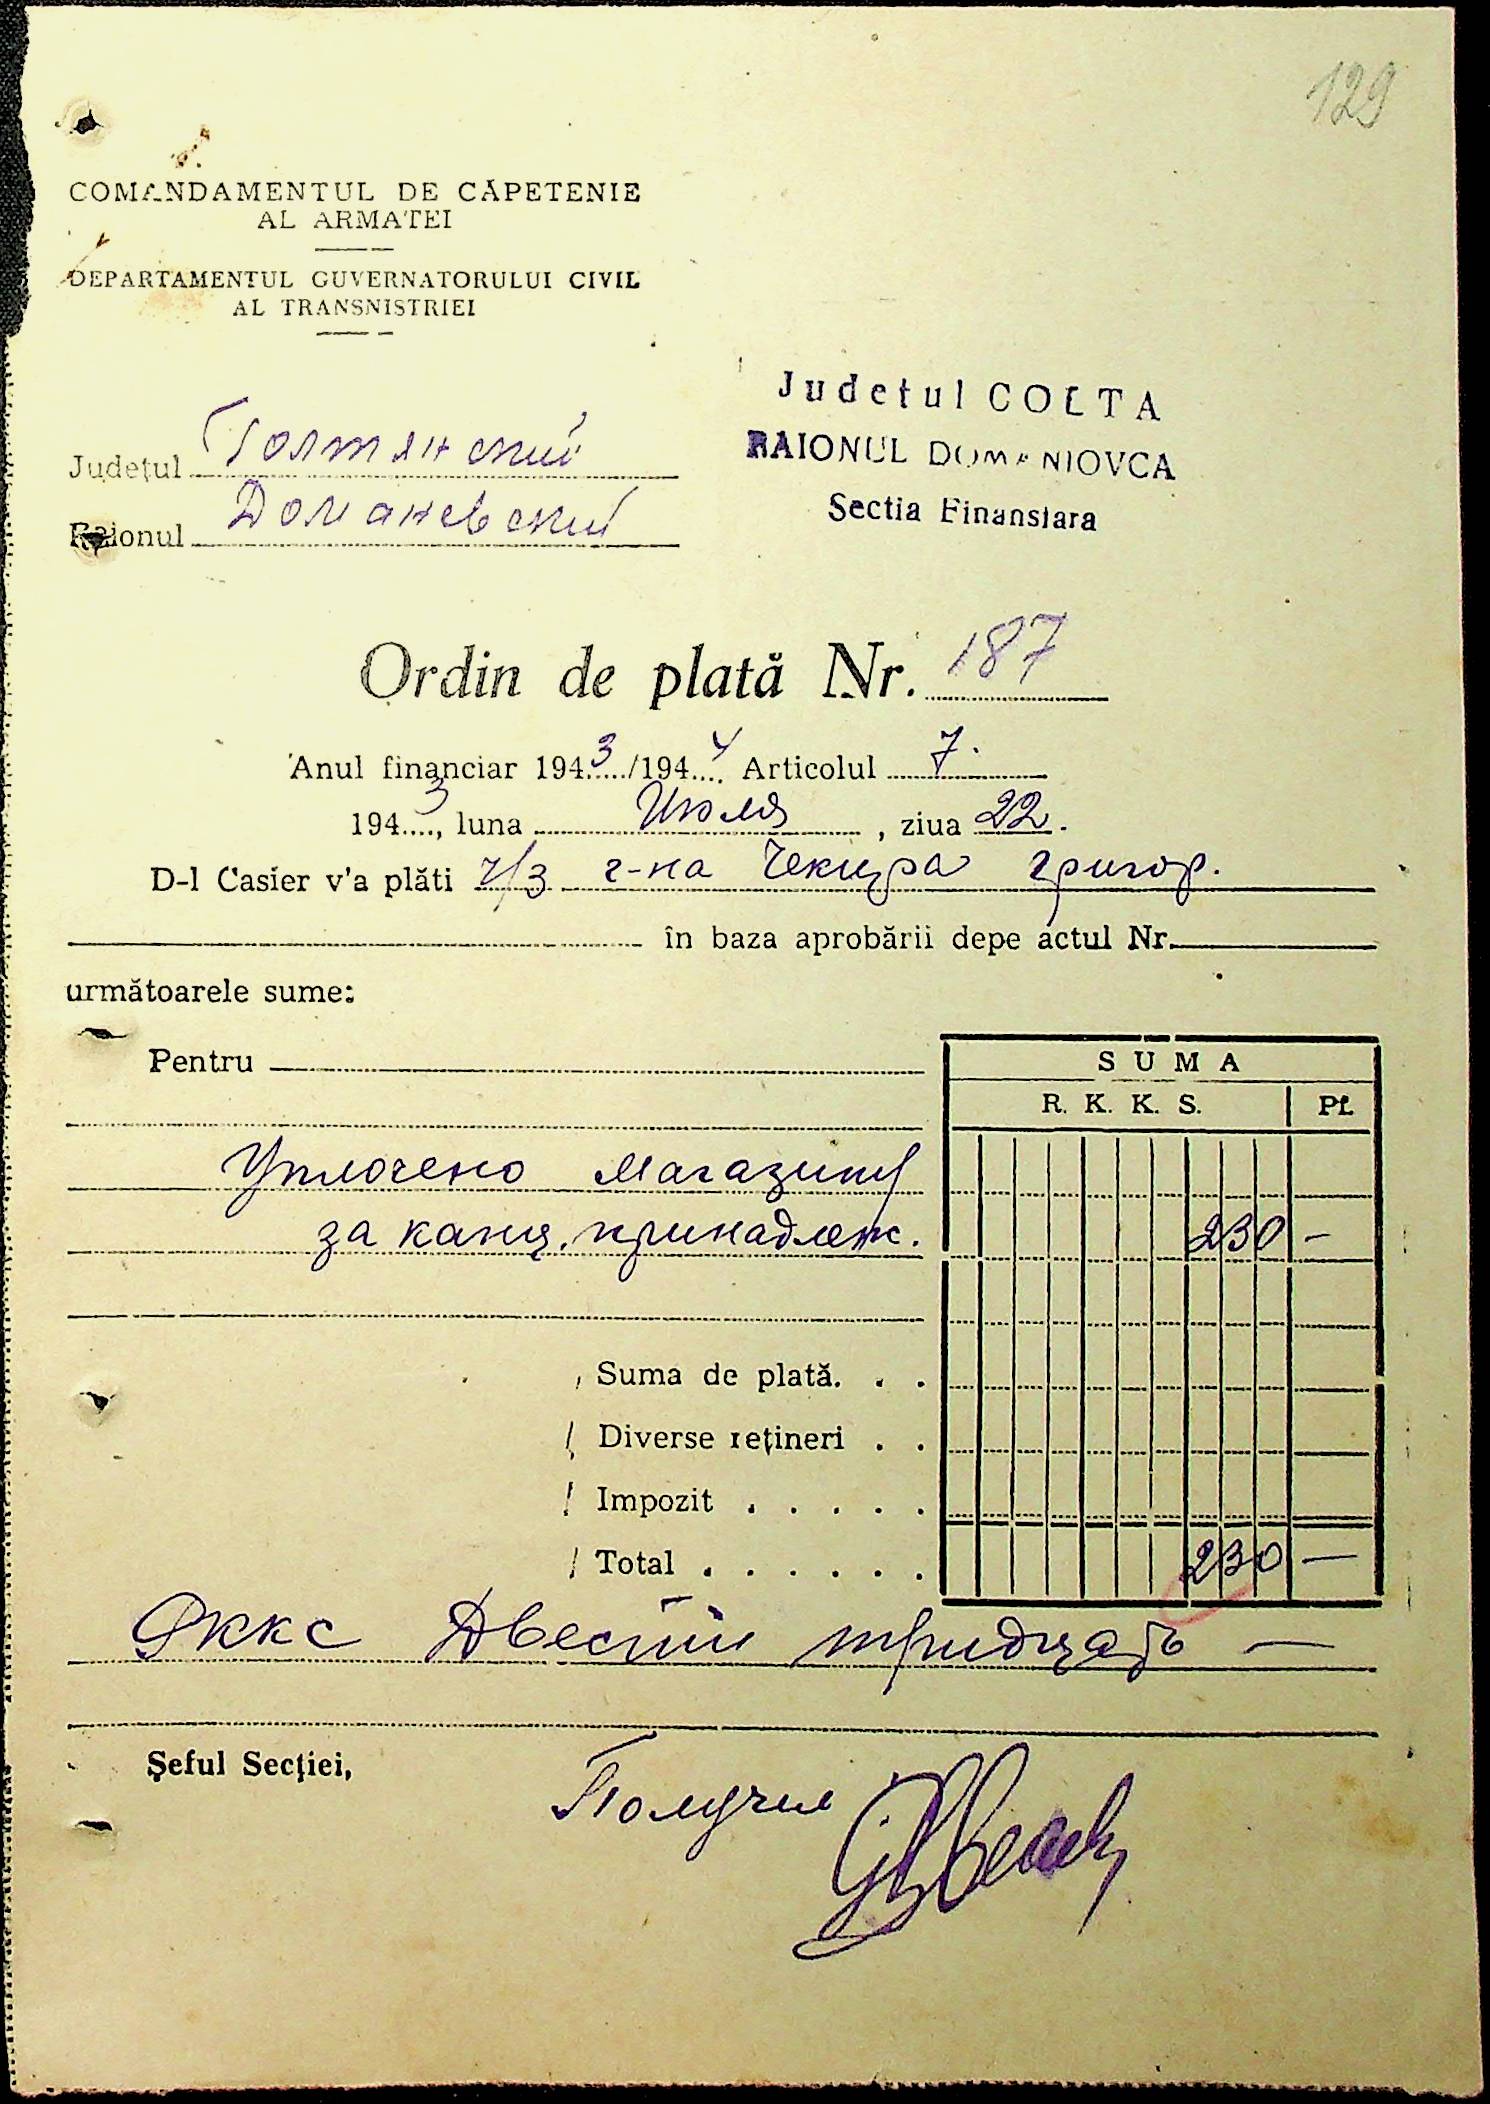 129
COMANDAMENTUL DE CĂPETENIE
AL ARMATEI
DEPARTAMENTUL GUVERNATORULUI CIVIL
AL TRANSNISTRIEI
Judetul GOLTA
RAIONUL DOMANIOVCA
Sectia Finansiara
Județul Голтянский
Raionul Доманевский
Ordin de plată Nr. 187
Anul financiar 1943/1944 Articolul 7.
1943, luna Июля, ziua 22.
D-l Casier v'a plăti ч/з г-на Чекира Григор.
în baza aprobării depe actul Nr.
următoarele sume:
Pentru
SUMA
R. K. K. S. Pf.
Уплочено магазину
за канц. принадлеж. 230 —
Suma de plată. . .
Diverse rețineri . .
Impozit . . . . .
Total . . . . . . 230 —
Двести тридцать —
Șeful Secției,
Получил